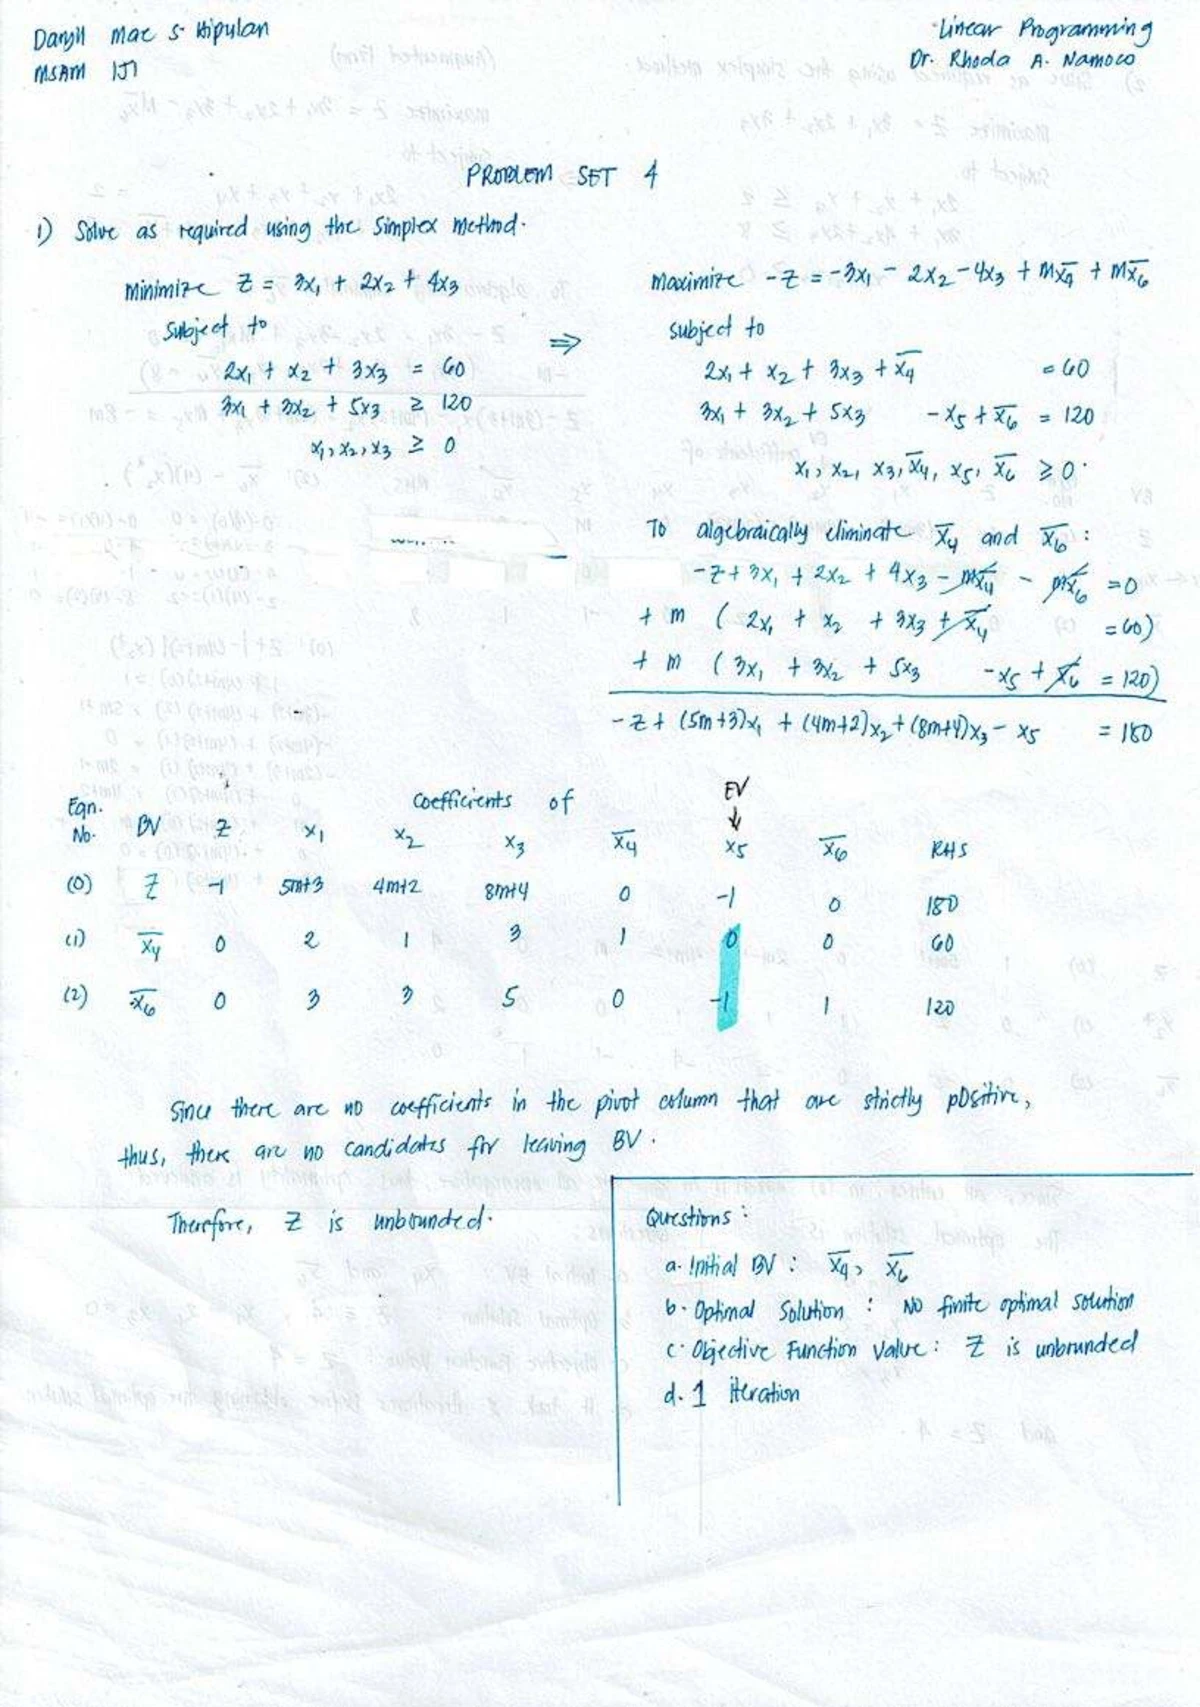 Daryll Mae S. Bipulan
MSAM 151
Linear Programming
Dr. Rhoda A. Namoco
PROBLEM SET 4
1) Solve as required using the Simplex Method.
minimize Z = 3x₁ + 2x₂ + 4x₃
Subject to
2x₁ + x₂ + 3x₃ = 60
3x₁ + 3x₂ + 5x₃ ≥ 120
x₁, x₂, x₃ ≥ 0
⇒
maximize -Z = -3x₁ - 2x₂ - 4x₃ + Mx̄₄ + Mx̄₆
subject to
2x₁ + x₂ + 3x₃ + x̄₄ = 60
3x₁ + 3x₂ + 5x₃ - x₅ + x̄₆ = 120
x₁, x₂, x₃, x̄₄, x₅, x̄₆ ≥ 0.
To algebraically eliminate x̄₄ and x̄₆ :
-Z + 3x₁ + 2x₂ + 4x₃ - Mx̄₄ - Mx̄₆ = 0
+ M ( 2x₁ + x₂ + 3x₃ + x̄₄ = 60)
+ M ( 3x₁ + 3x₂ + 5x₃ - x₅ + x̄₆ = 120)
-Z + (5M+3)x₁ + (4M+2)x₂ + (8M+4)x₃ - x₅ = 180
Coefficients of EV
↓
Eqn. No. BV Z x₁ x₂ x₃ x̄₄ x₅ x̄₆ RHS
(0) Z -1 5M+3 4M+2 8M+4 0 -1 0 180
(1) x̄₄ 0 2 1 3 1 0 0 60
(2) x̄₆ 0 3 3 5 0 -1 1 120
Since there are no coefficients in the pivot column that are strictly positive,
thus, there are no candidates for leaving BV.
Therefore, Z is unbounded.
Questions :
a. Initial BV : x̄₄, x̄₆
b. Optimal Solution : No finite optimal solution
c. Objective Function Value : Z is unbounded
d. 1 iteration